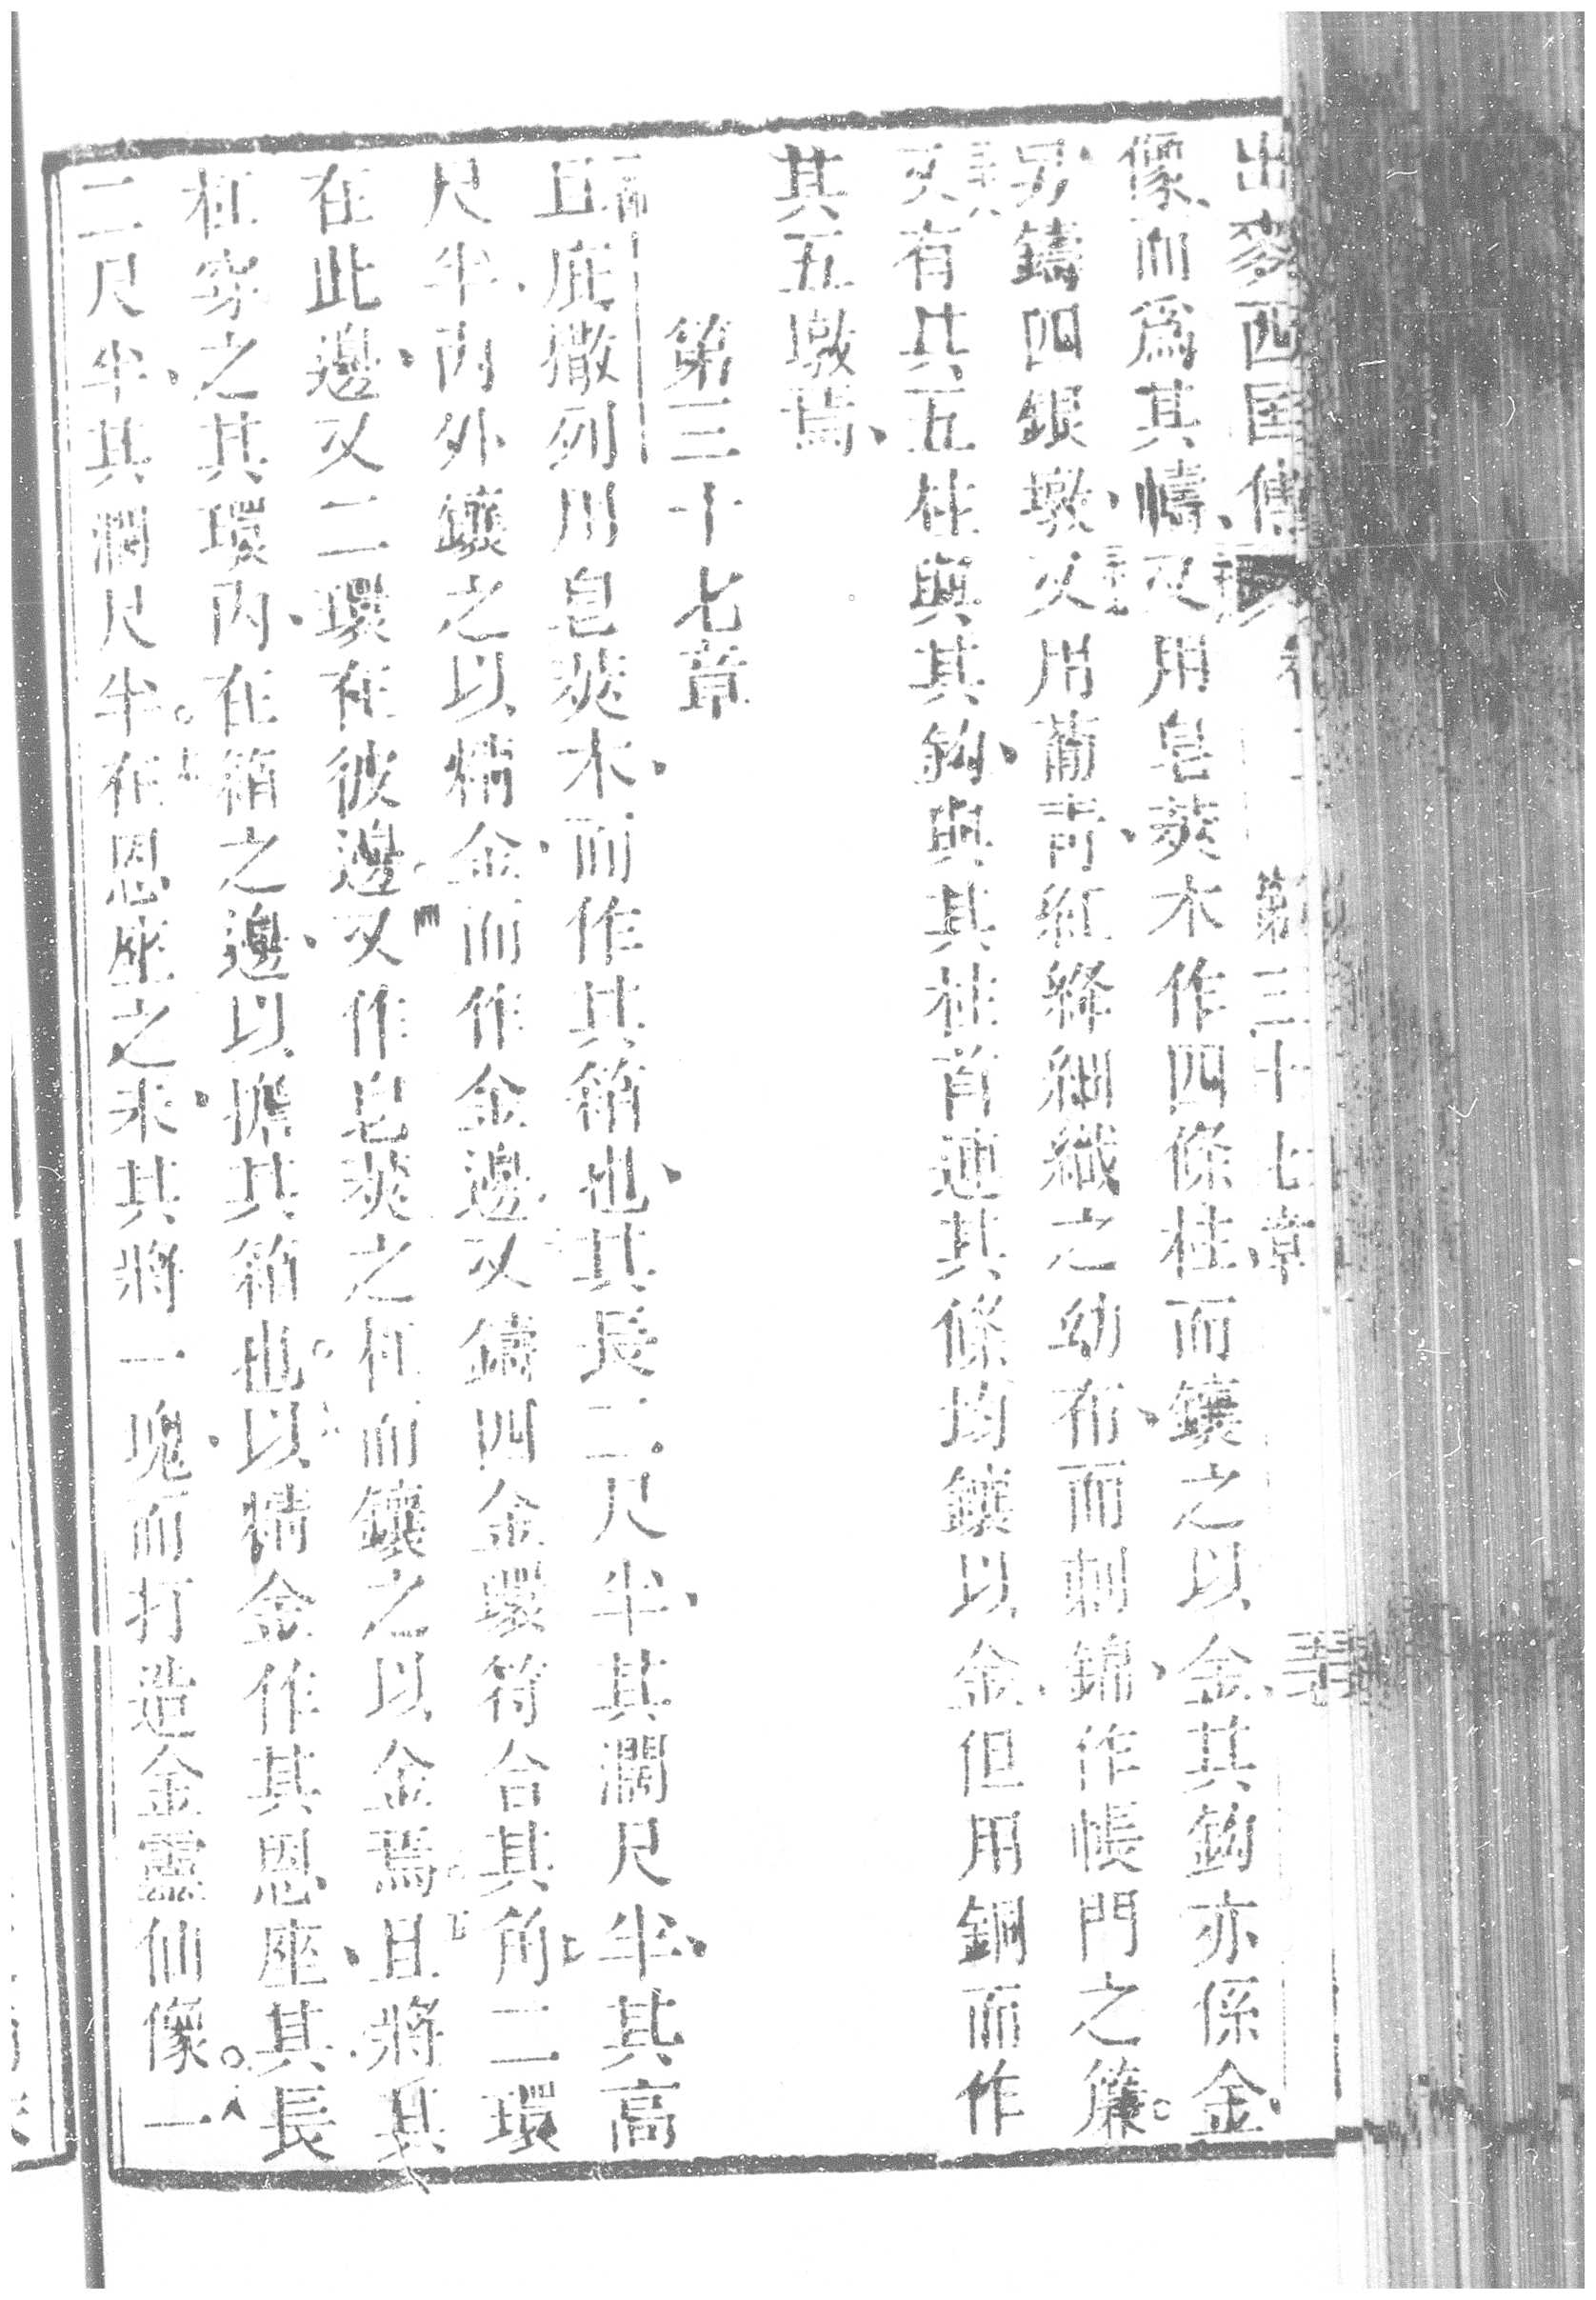 出麥西國傳 第三十七章
像而爲其幬又用皂莢木作四條柱而鑲之以金其鈎亦係金
另鑄四銀墩又用葡青紅絳細織之幼布而刺錦作帳門之簾
又有其五柱與其鈎與其柱首連其條均鑲以金但用銅而作
其五墩焉
第三十七章
且庇撒列用皂莢木而作其箱也其長二尺半其濶尺半其高
尺半內外鑲之以精金而作金邊又鑄四金環符合其角二環
在此邊又二環在彼邊又作皂莢之杠而鑲之以金焉且將其
杠穿之其環內在箱之邊以擔其箱也以精金作其恩座其長
二尺半其濶尺半在恩座之末其將一塊而打造金靈仙像一